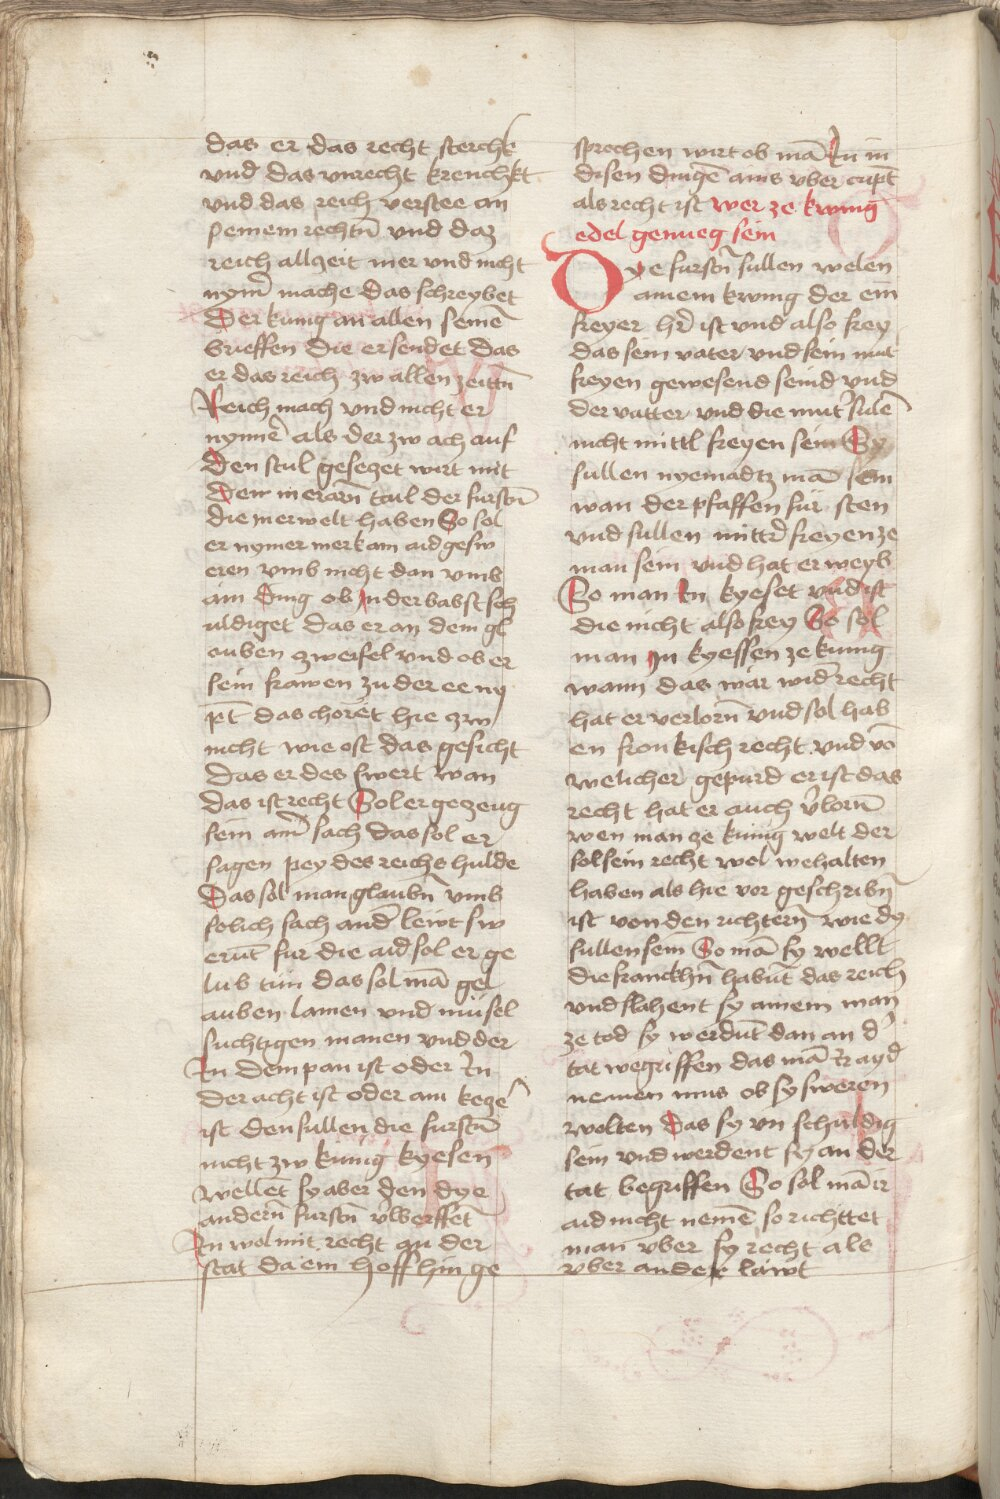 das er das recht sterchk
vnd das vnrecht krenchkt
vnd das reich verstee an
seinem rechtn̄ vnd daz
reich allzeit mer vnd nicht
nym̄ mache das schreybet
Der kunig an allen seinē
brieffen die er sendet das
er das reich zw allen zeittn̄
Reich mach vnd nicht er
nymē als der zw ach auf
den stul gesezet wirt mit
dem merarn̄ tail der furstn̄
die in erwelt haben So sol
er nymer merkam aid gesw
eren vmb nicht dan vmb
ain ding ob in der babst sch
uldiget das er an dem gl
auben zweifel vnd ob er
sein frawen zu der ee ny
pt̄ das choret hie zw
nicht wie oft das gesicht
das er des swert wan
das ist recht Sol er gezeug
sein ain̄ sach das sol er
sagen pey des reichs hulde
Das sol man glaubn̄ vmb
solich sach and̄ lewt sw
erūt fur die aid sol er ge
lub tun das sol mā gel
auben lamen vnd müsel
suchtigen manen vnd der
In dem pan ist oder In
der acht ist oder ain kecz̄
ist den sullen die furstn̄
nicht zw kunig kyesen
wellēt sy aber den dye
andern̄ furstn̄ v̄berffet
In wol mit recht an der
stat da ein hoff hin ge
sprochen wirt ob mā In in
disen dingē ains vber cupt̄
als recht ist wer ze kunig
edel genueg sein
Dye furstn̄ sullen welen
ainem kunig der ein
freyer hr̄ ist vnd also frey
das sein vater vnd sein mut
freyen gewesend seind vnd
der vatter vnd die mut̄ sulē
nicht mittl freyen sein Sy
sullen nyemadtz mā sein
wan der pfaffen fur sten
vnd sullen mittr̄ freyen ze
man sein vnd hat er weyb
So man In kyeset vnd ist
die nicht also frey So sol
man In kyessen ze kunig
wann das wär wid̄ recht
hat er verlorn̄ vnd sol hab
en fronkisch recht vnd vō
welicher gepurd er ist das
recht hat er auch v̄lorn̄
wen man ze kunig welt der
sol sein recht wol wehalten
haben als hie vor geschribn̄
ist von den richtern̄ wie dy
sullen sein So mā sy wellt
die franckhn̄ habūt das reich
vnd slahent sy ainem man
ze tod sy werdut dan an d̄
tat wegriffen das mā Ir ayd̄
nemen mus ob sy sweren
wolten das sy vn schuldig
sein vnd werdent sy an der
tat begriffen So sol mā ir
aid nicht nemē so richttet
man vber sy recht als
vber ander läwt